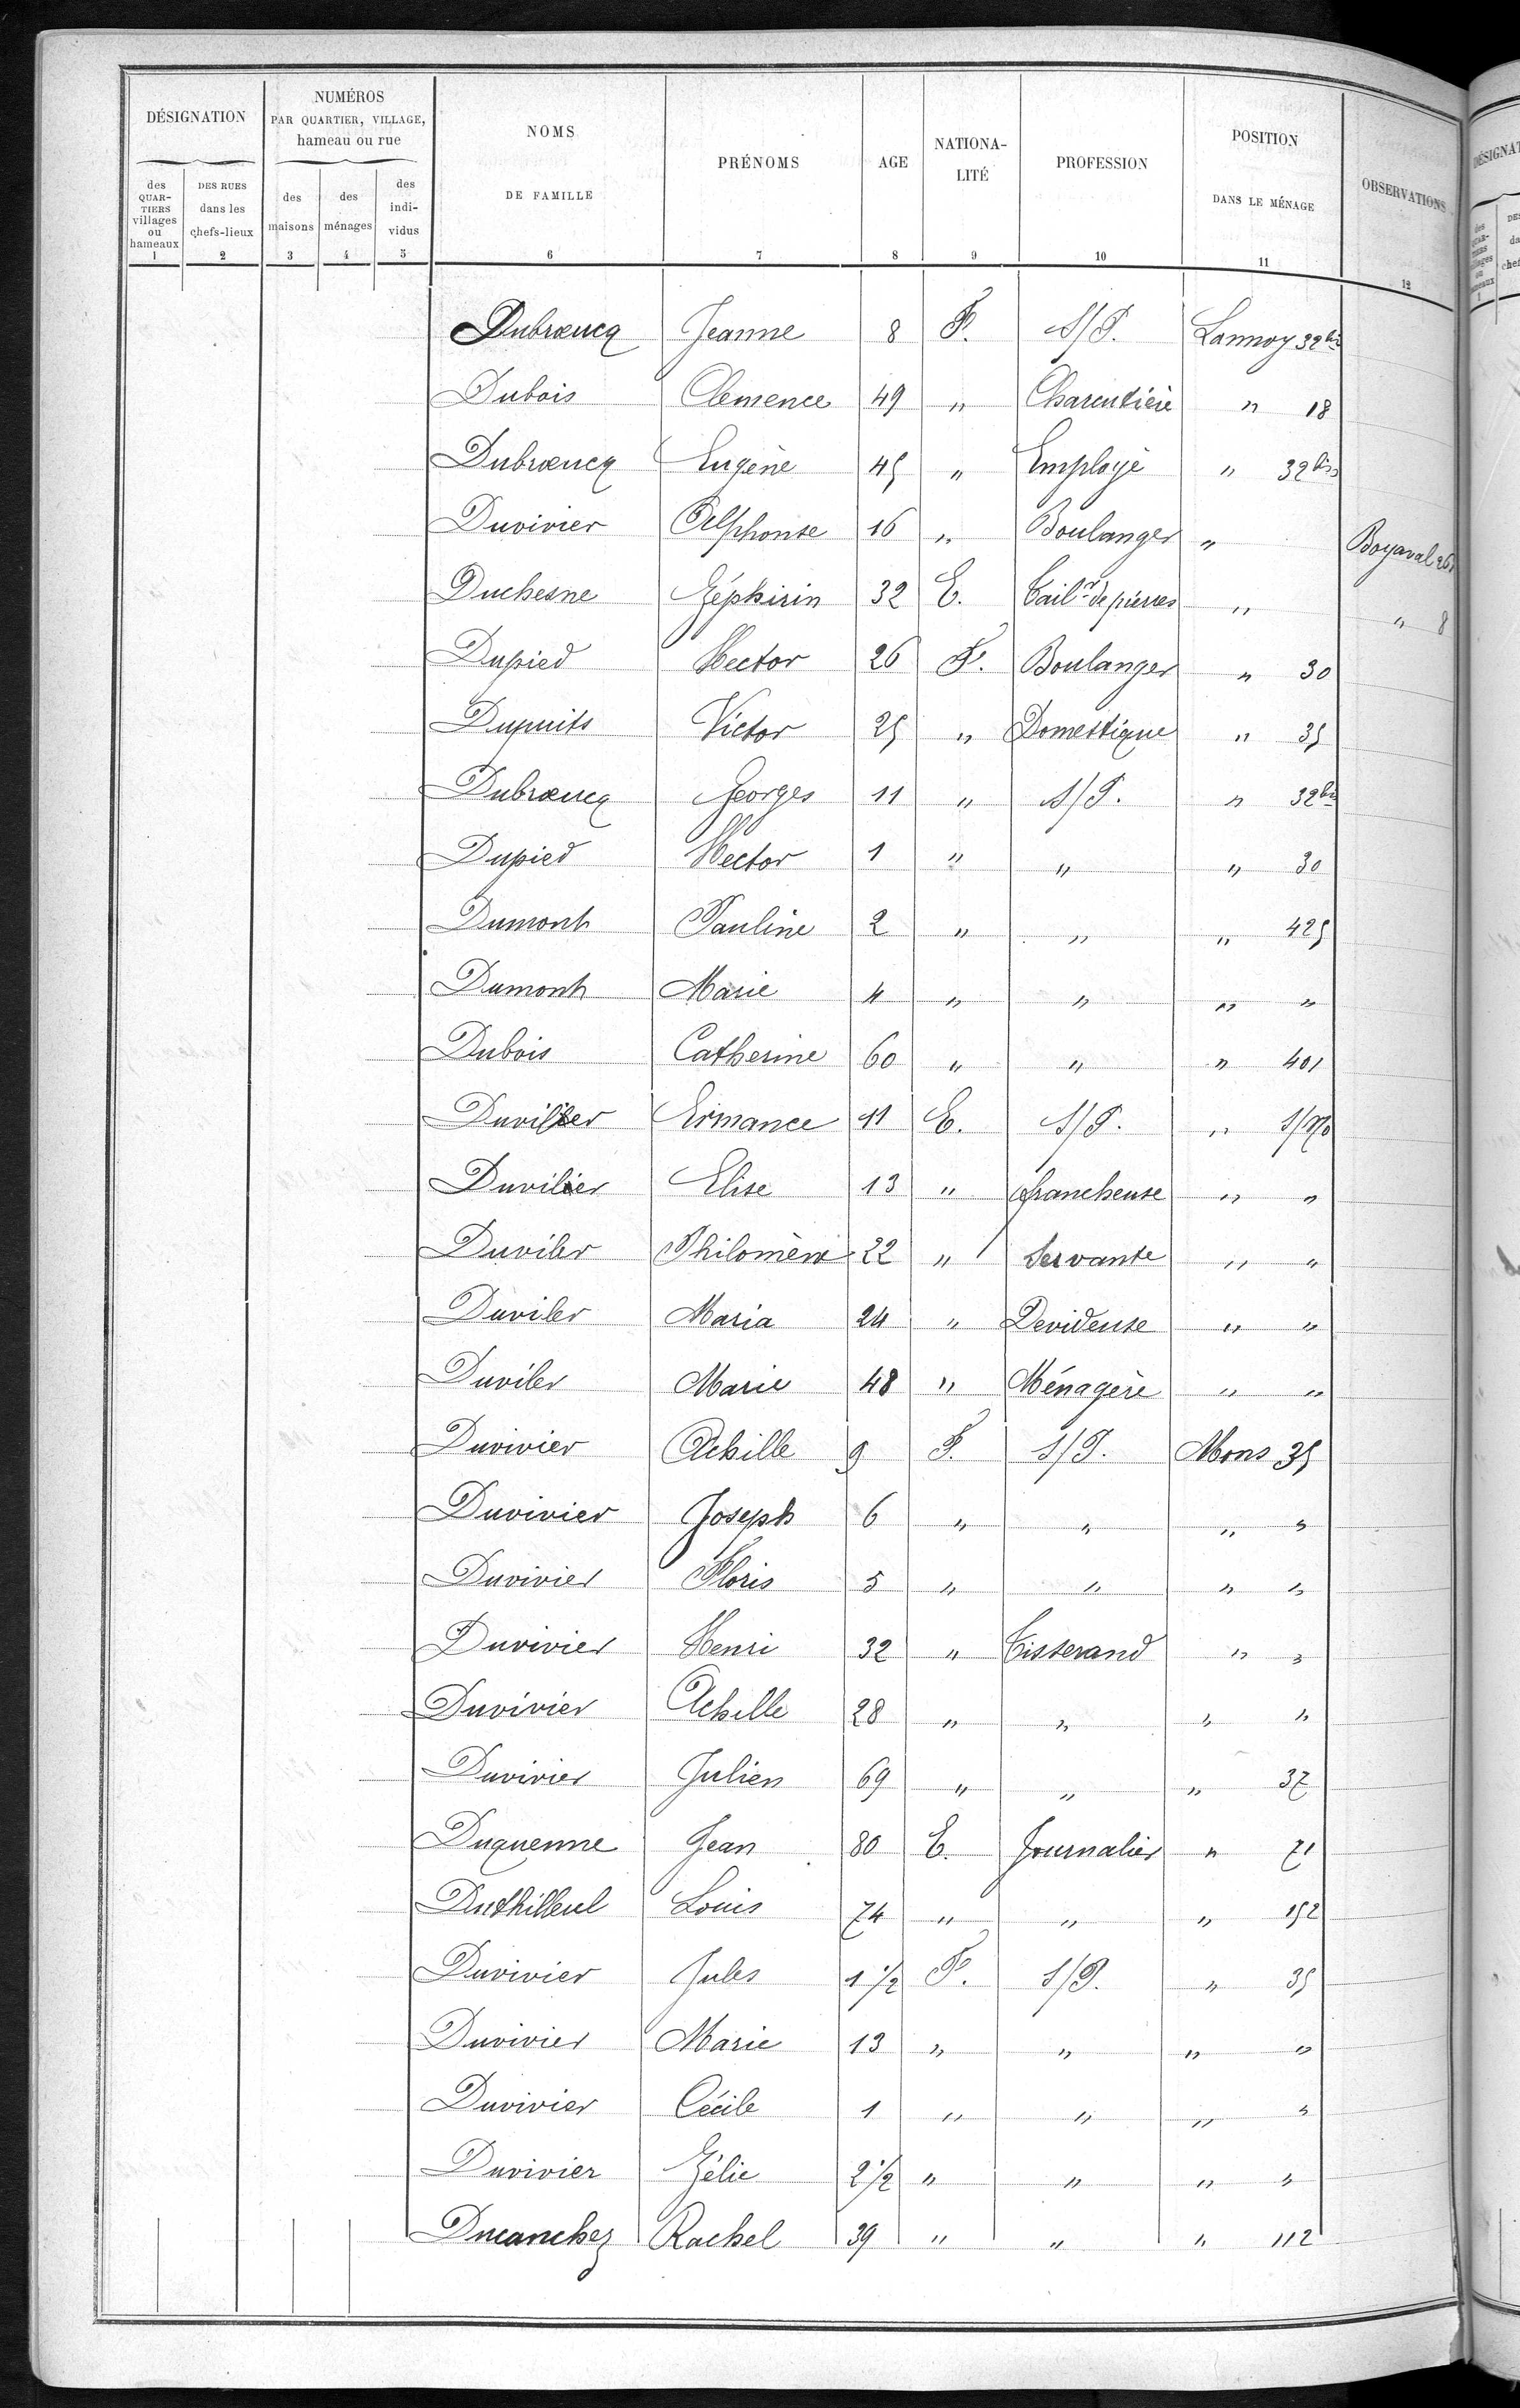 DÉSIGNATION NUMÉROS PAR QUARTIER, VILLAGE, hameau ou rue NOMS DE FAMILLE PRÉNOMS AGE NATIONALITÉ PROFESSION POSITION DANS LE MÉNAGE OBSERVATIONS
des QUARTIERS villages ou hameaux DES RUES dans les chefs-lieux des maisons des ménages des individus
1 2 3 4 5 6 7 8 9 10 11 12
Dubrœucq Jeanne 8 F. S/P. Lannoy 32 bis
Dubois Clemence 49 " Charcutière " 18
Dubrœucq Eugène 45 " Employé " 32 bis
Duvivier Alphonse 16 " Boulanger " Boyaval 261
Duchesne Zéphirin 32 E. Tailr de pierres " " 8
Dupied Hector 26 F. Boulanger " 30
Dupuits Victor 25 " Domestique " 35
Dubrœucq Georges 11 " S/P. " 32 bis
Dupied Hector 1 " " " 30
Dumont Pauline 2 " " " 425
Dumont Marie 4 " " " "
Dubois Catherine 60 " " " 401
Duviller Ermance 11 E. S/P. " S/No
Duviler Elise 13 " francheuse " "
Duviler Philomène 22 " Servante " "
Duviler Maria 24 " Devideuse " "
Duviler Marie 48 " Ménagère " "
Duvivier Achille 9 F. S/P. Mons 35
Duvivier Joseph 6 " " " "
Duvivier Floris 5 " " " "
Duvivier Henri 32 " Tisserand " "
Duvivier Achille 28 " " " "
Duvivier Julien 69 " " " 37
Duquenne Jean 80 E. Journalier " 71
Duthilleul Louis 74 " " " 152
Duvivier Jules 1 1/2 F. S/P. " 35
Duvivier Marie 13 " " " "
Duvivier Cécile 1 " " " "
Duvivier Zélie 2 1/2 " " " "
Ducanchez Rachel 39 " " " 112